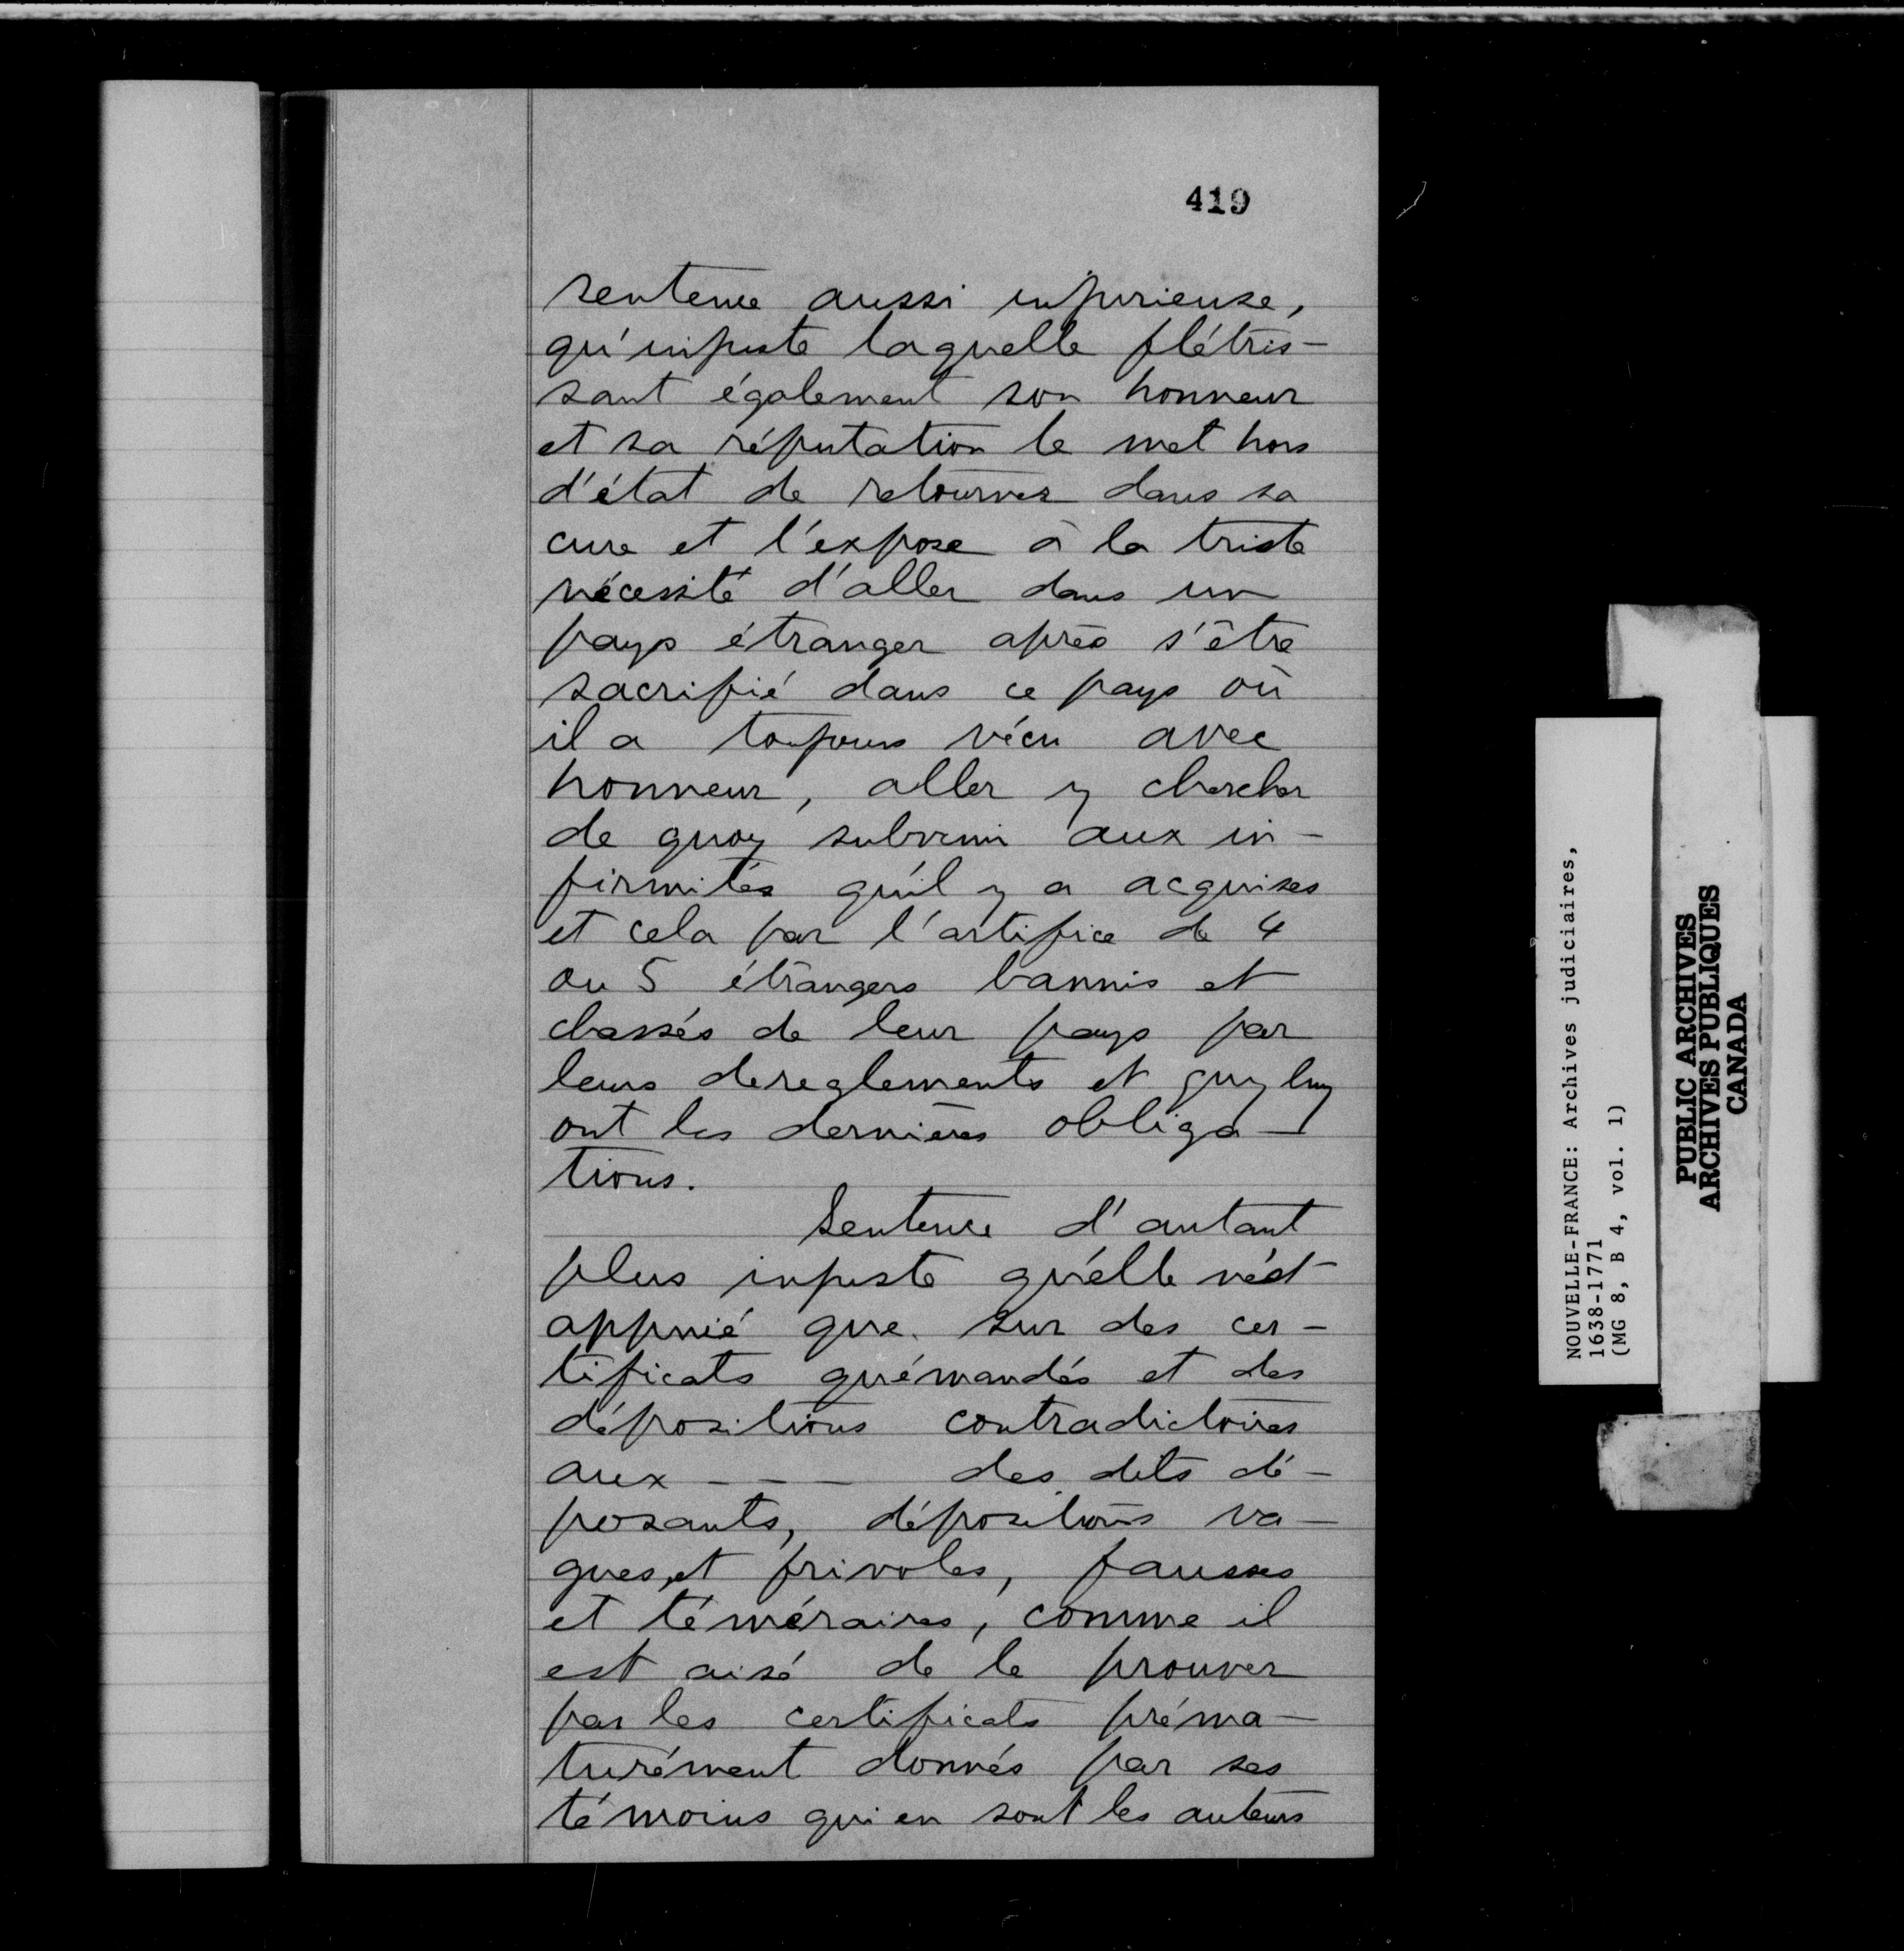 419
sentence aussi injurieuse,
qu'injuste laquelle flétris-
sant également son honneur
et sa réputation le met hors
d'état de retourner dans sa
cure et l'expose à la triste
nécessité d'aller dans un
pays étranger après s'être
sacrifié dans ce pays où
il a toujours vécu avec
honneur, aller y chercher
de quoy subvenir aux in-
firmités qu'il y a acquises
et cela par l'artifice de 4
ou 5 étrangers bannis et
chassés de leur pays par
leurs dereglements et quy luy
ont les dernières obliga-
tions.
Sentence d'autant
plus injuste qu'elle n'est
appuié que sur des cer-
tificats quémandés et des
dépositions contradictoires
aux - - - des dits dé-
posants, dépositions va-
gues, et frivoles, fausses
et téméraires, comme il
est aisé de le prouver
par les certificats préma-
turément donnés par ses
témoins qui en sont les auteurs
NOUVELLE-FRANCE: Archives judiciaires,
1638-1771
(MG 8, B 4, vol. 1)
PUBLIC ARCHIVES
ARCHIVES PUBLIQUES
CANADA